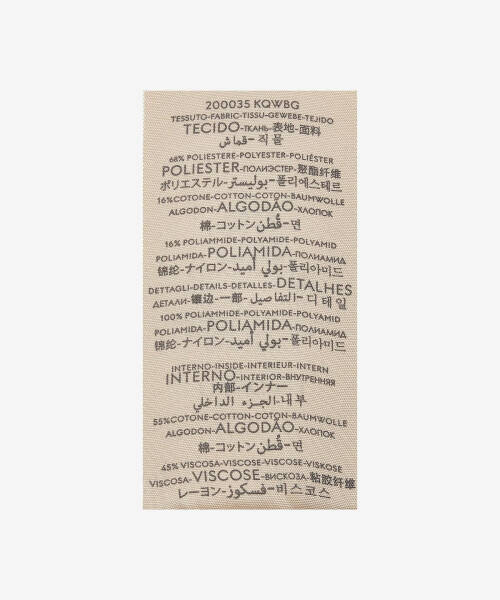 200035 KQWBG
TESSUTO-FABRIC-TISSU-GEWEBE-TEJIDO
TECIDO-ТКАНЬ-表地-面料
قماش-직물
68% POLIESTERE-POLYESTER-POLIÉSTER
POLIESTER-ПОЛИЭСТЕР-聚酯纤维
ポリエステル-بوليستر-폴리에스테르
16%COTONE-COTTON-COTON-BAUMWOLLE
ALGODON-ALGODÃO-ХЛОПОК
棉-コットン-قُطن-면
16% POLIAMMIDE-POLYAMIDE-POLYAMID
POLIAMIDA-POLIAMIDA-ПОЛИАМИД
锦纶-ナイロン-بولي أميد-폴리아미드
DETTAGLI-DETAILS-DETALLES-DETALHES
ДЕТАЛИ-镶边-一部-التفاصيل-디테일
100% POLIAMMIDE-POLYAMIDE-POLYAMID
POLIAMIDA-POLIAMIDA-ПОЛИАМИД
锦纶-ナイロン-بولي أميد-폴리아미드
INTERNO-INSIDE-INTERIEUR-INNEN
INTERNO-INTERIOR-ВНУТРЕННЯЯ
内部-インナー
الجزء الداخلي-내부
55%COTONE-COTTON-COTON-BAUMWOLLE
ALGODON-ALGODÃO-ХЛОПОК
棉-コットン-قُطن-면
45% VISCOSA-VISCOSE-VISCOSE-VISKOSE
VISCOSA-VISCOSE-ВИСКОЗА-粘胶纤维
レーヨン-فسكوز-비스코스